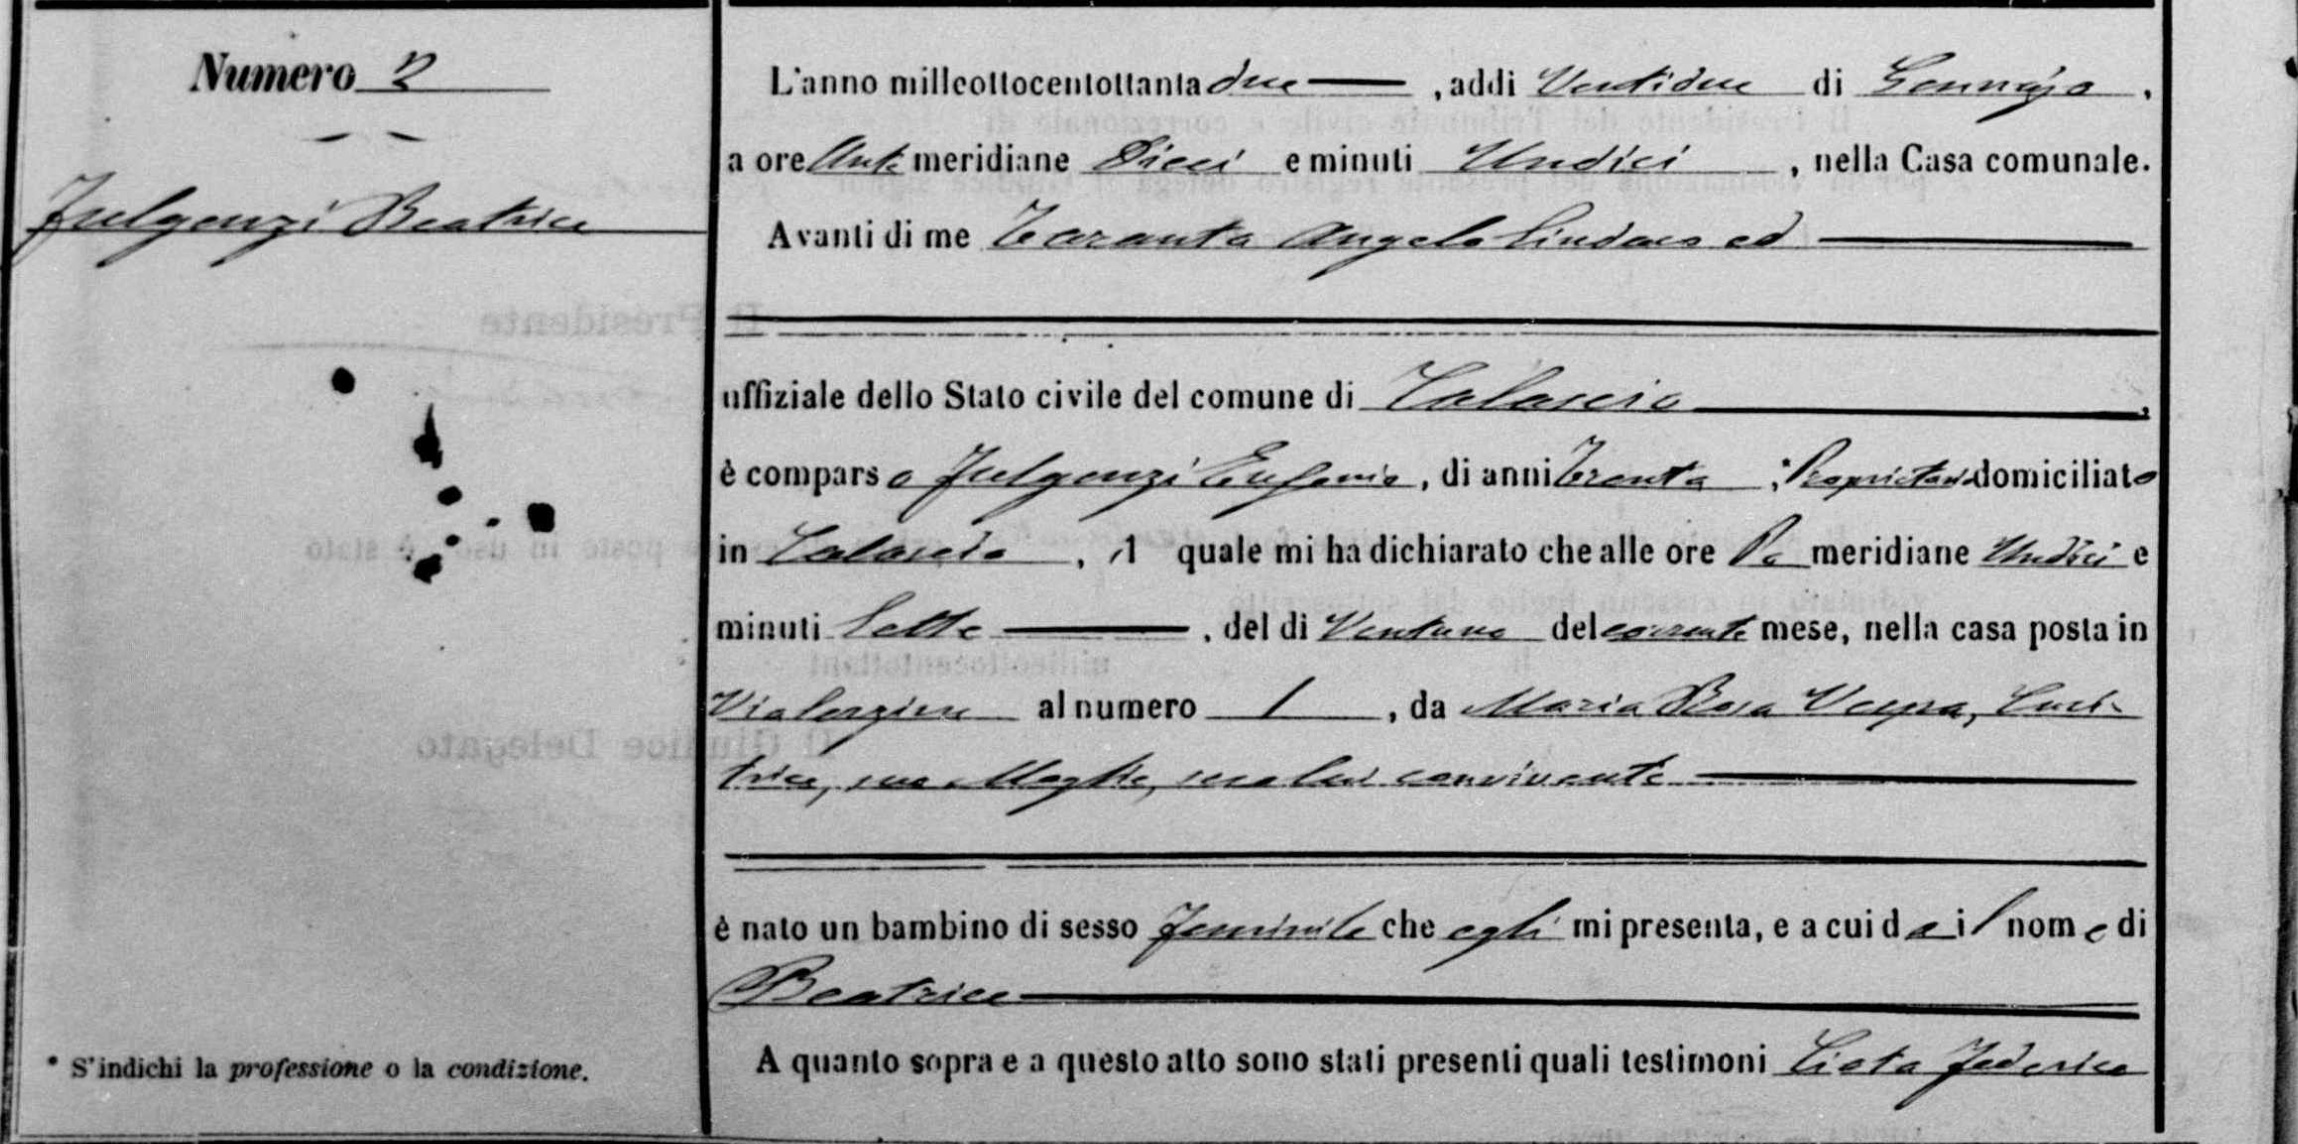 Numero 2
Fulgenzi Beatrice
* S'indichi la professione o la condizione.
L'anno milleottocentottanta due, addi Ventidue di Gennajo,
a ore Ante meridiane Dieci e minuti Undici, nella Casa comunale.
Avanti di me Taranta Angelo Sindaco ed
uffiziale dello Stato civile del comune di Calascio,
è comparso Fulgenzi Eufemio, di anni trenta, *Proprietario domiciliato
in Calascio, il quale mi ha dichiarato che alle ore Po meridiane Undici e
minuti Sette, del di Ventuno del corrente mese, nella casa posta in
Via al numero 1, da Maria Rosa Vespa, Cuci-
trice, sua Moglie, seco lui convivente
è nato un bambino di sesso feminile che egli mi presenta, e a cui da il nome di
Beatrice
A quanto sopra e a questo atto sono stati presenti quali testimoni Federico